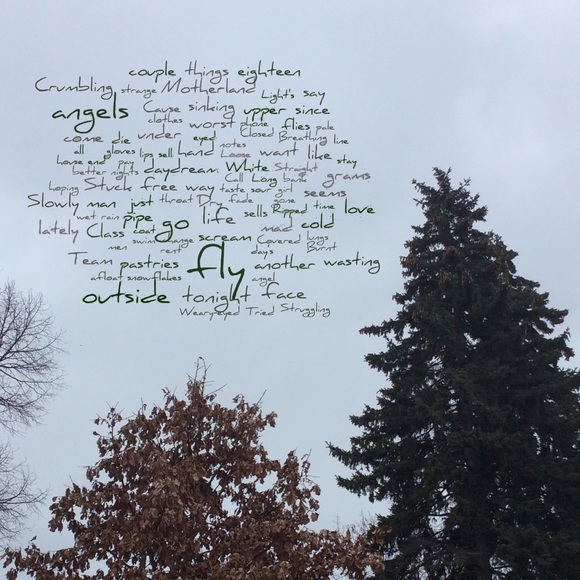 couple things eighteen
Crumbling strange Motherland Light's say
angels Cause sinking upper since
clothes worst phone flies pale
come die under eyed Closed Breathing line
all gloves lips sell hand notes Loose want like stay
house end pay daydream White Straight
better nights Call Long bank grams
hoping Stuck free way taste sour girl seems
Slowly man just throat Dry fade gone
wet rain pipe go life sells Ripped time love
lately Class coat mad cold
swim change scream Covered lungs
men rent days Burnt
Team pastries fly another wasting
afloat snowflakes angel
outside tonight face
Weary-eyed Tried Struggling